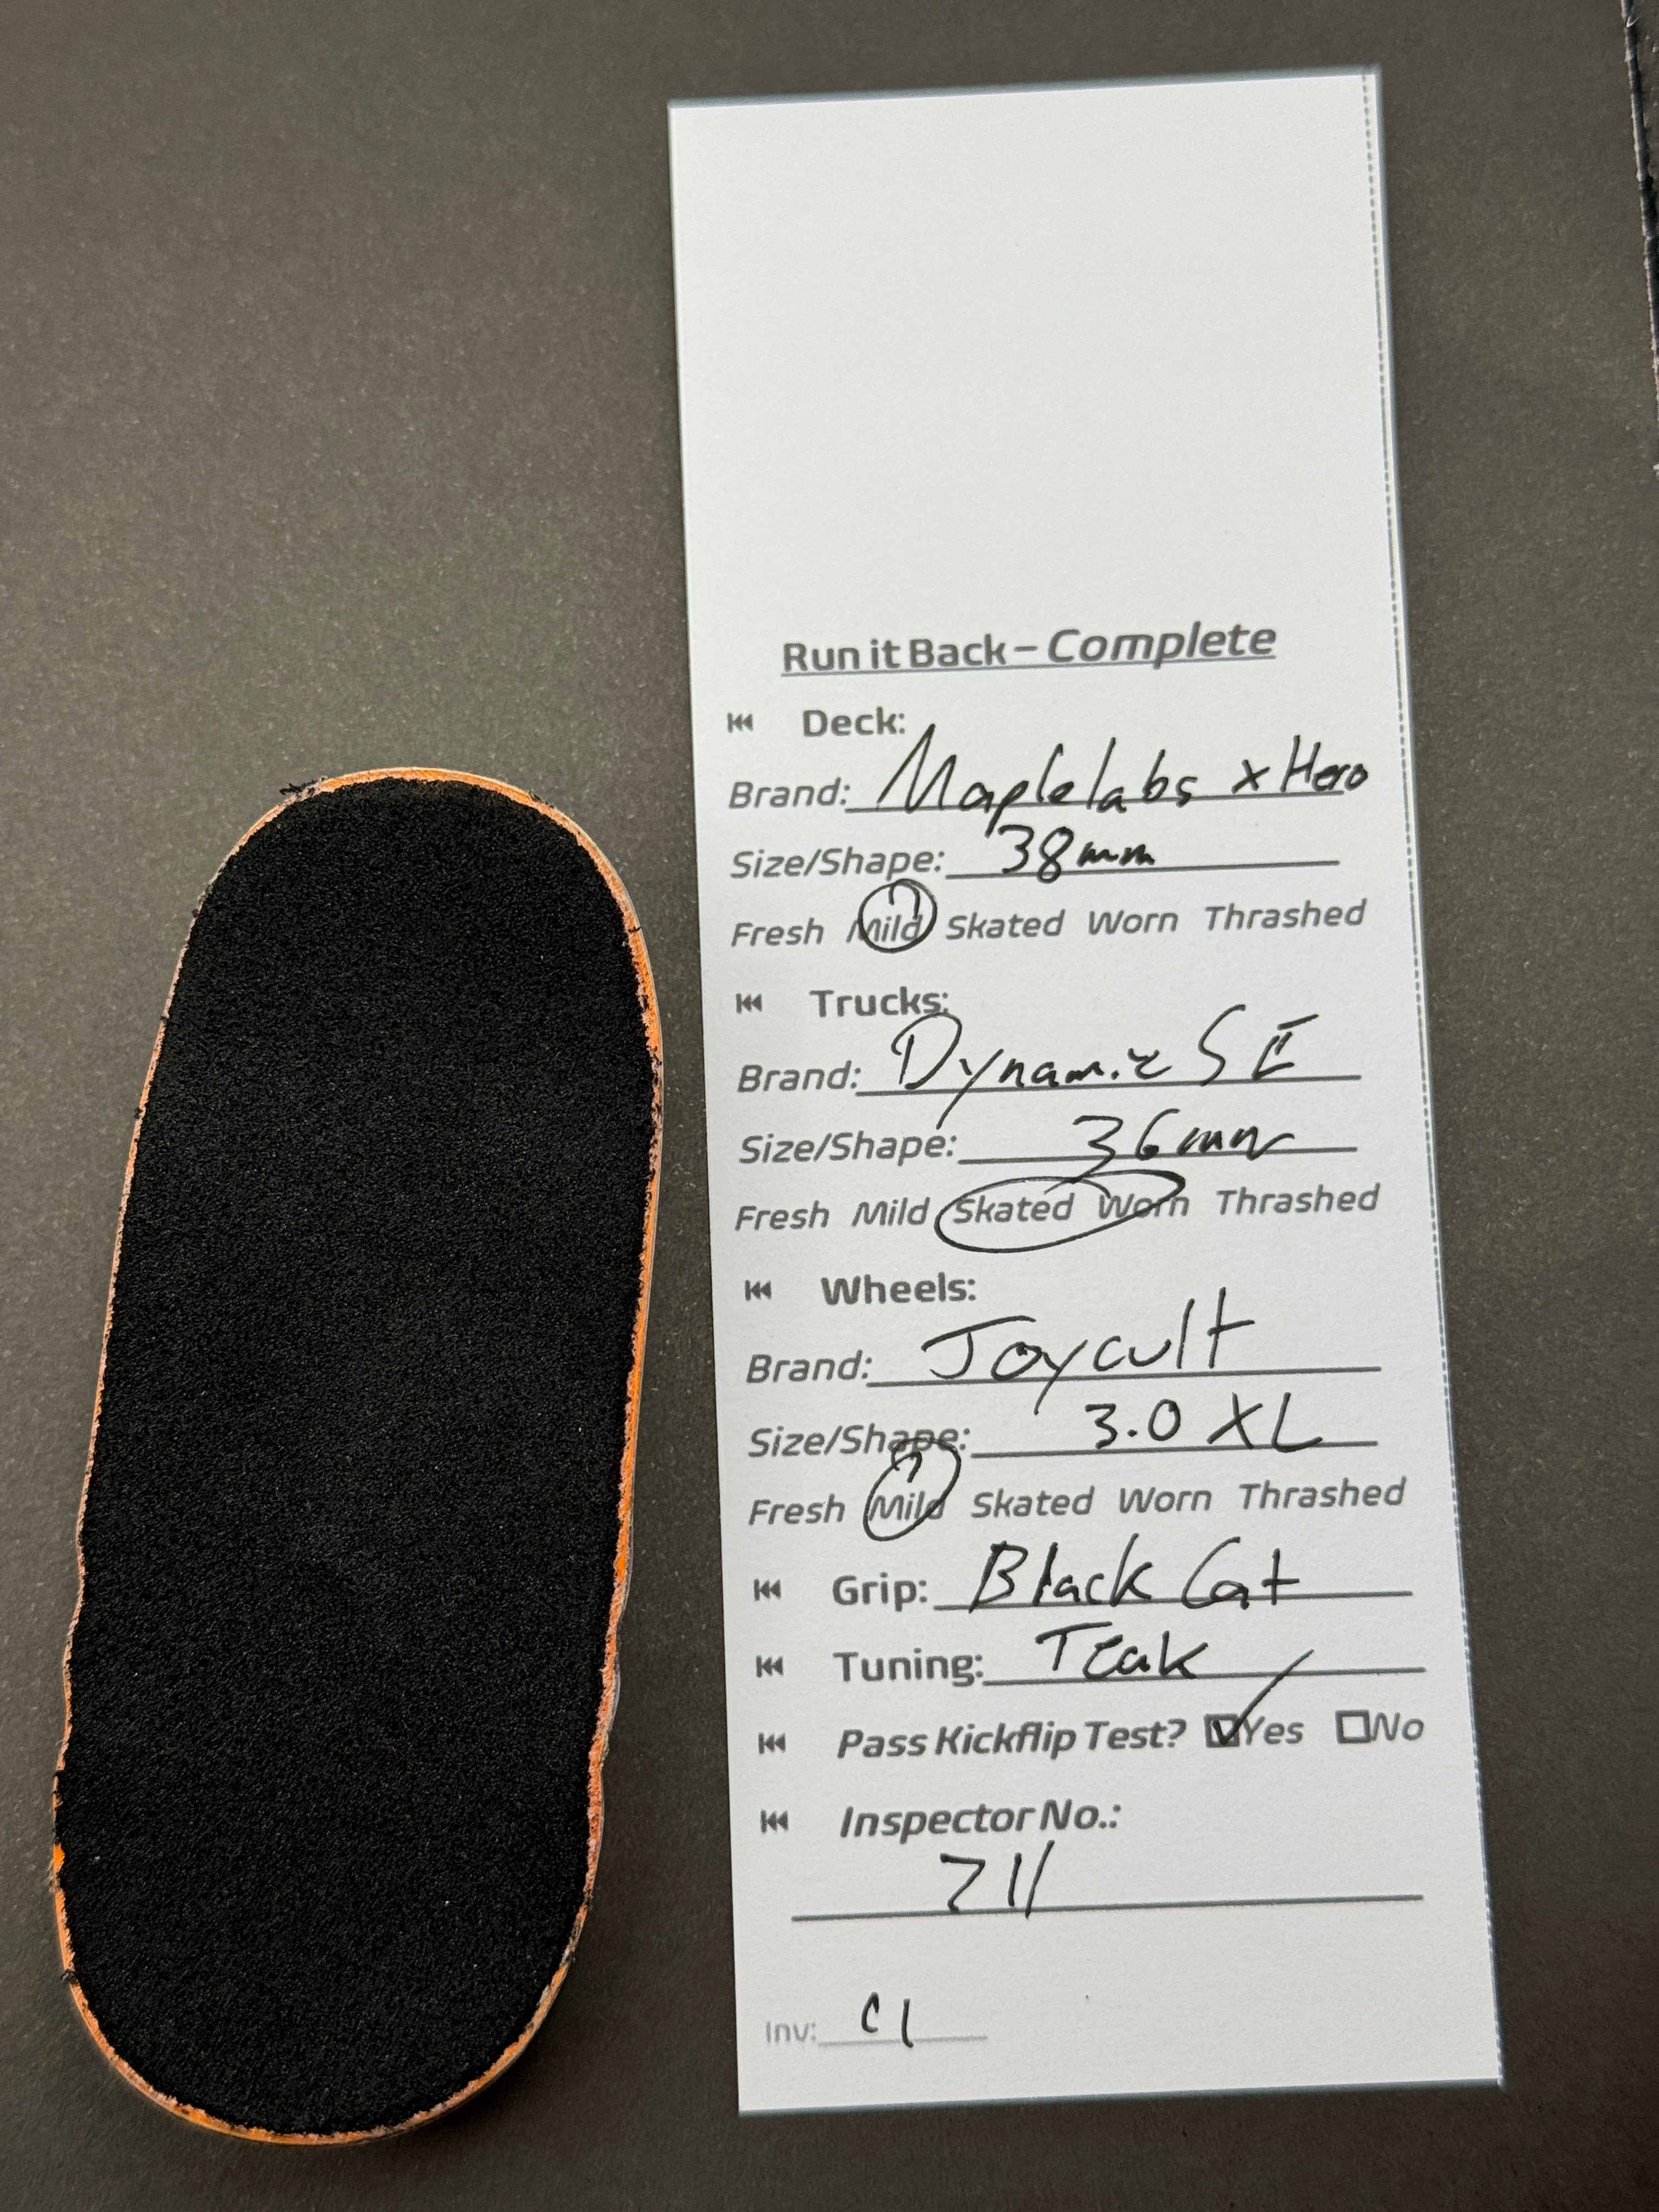 Run it Back – Complete
Deck:
Brand: Maplelabs x Hero
Size/Shape: 38mm
Fresh Mild Skated Worn Thrashed
Trucks:
Brand: Dynamic SE
Size/Shape: 36mm
Fresh Mild Skated Worn Thrashed
Wheels:
Brand: Joycult
Size/Shape: 3.0 XL
Fresh Mild Skated Worn Thrashed
Grip: Black Cat
Tuning: Teak
Pass Kickflip Test? Yes No
Inspector No.:
711
Inv: C1